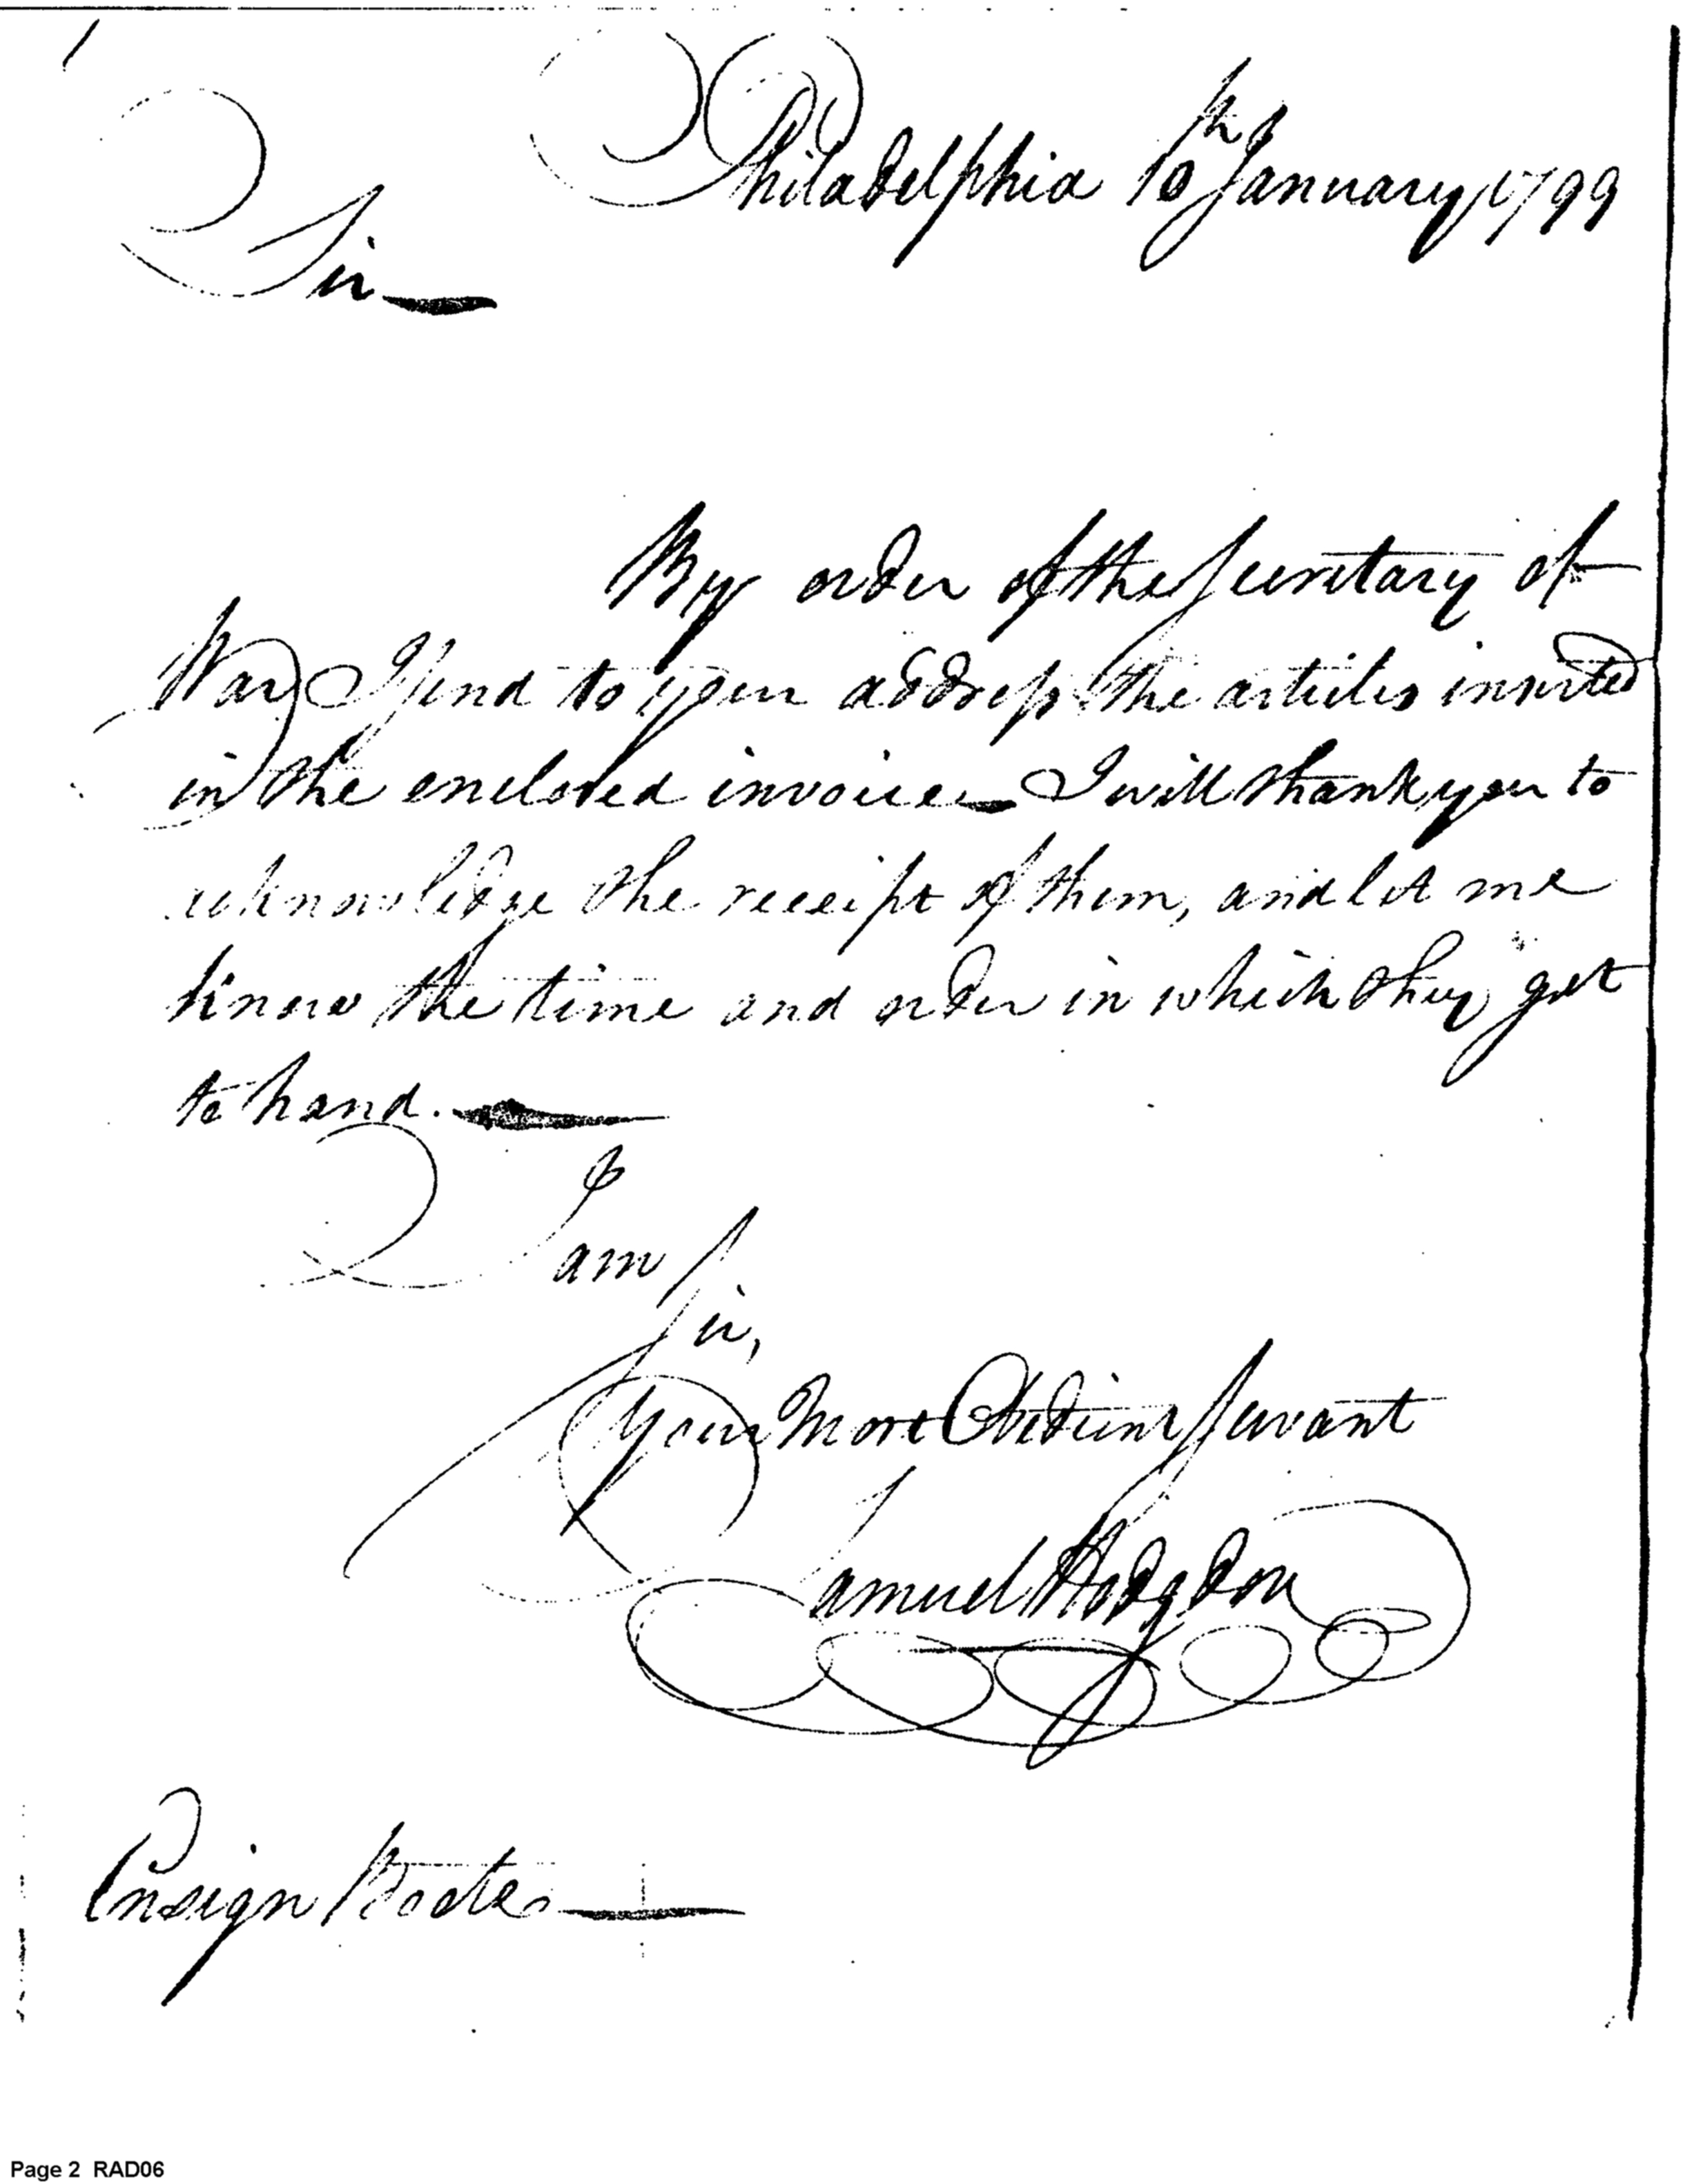 Philadelphia 10th January 1799
Sir
By order of the Secretary of
War I send to your address the articles inserted
in the enclosed invoice I will thank you to
acknowledge the receipt of them, and let me
know the time and order in which they get
to hand.
I am
Sir,
Your Most Obedient Servant
Samuel Hodgdon
Ensign
Page 2 RAD06